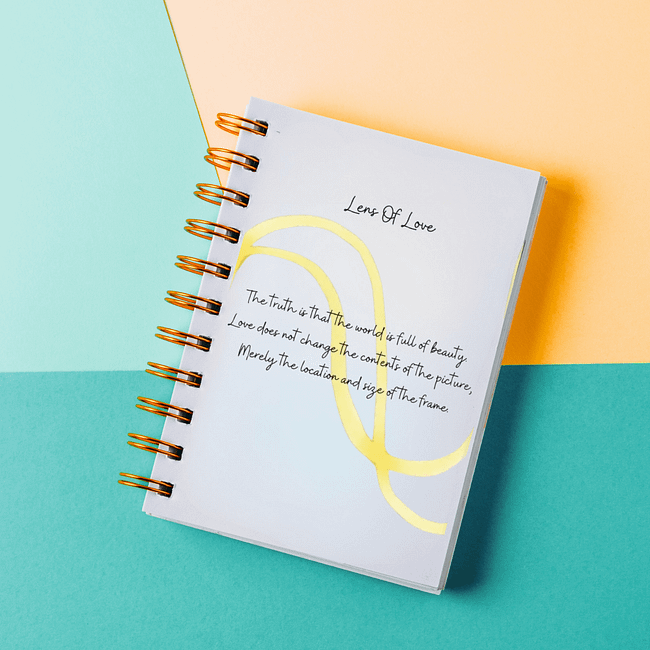 Lens Of Love
The truth is that the world is full of beauty.
Love does not change the contents of the picture,
Merely the location and size of the frame.